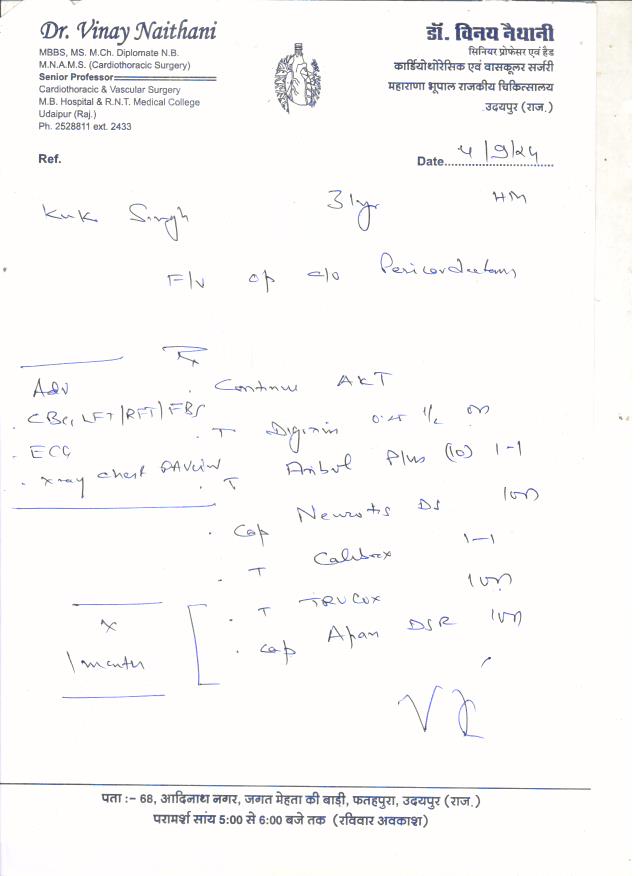 Dr. Vinay Naithani
MBBS, MS. M.Ch. Diplomate N.B.
M.N.A.M.S. (Cardiothoracic Surgery)
Senior Professor
Cardiothoracic & Vascular Surgery
M.B. Hospital & R.N.T. Medical College
Udaipur (Raj.)
Ph. 2528811 ext. 2433
डॉ. विनय नैथानी
सिनियर प्रोफेसर एवं हैड
कार्डियोथोरेसिक एवं वासकूलर सर्जरी
महाराणा भूपाल राजकीय चिकित्सालय
उदयपुर (राज.)
Ref.
Date 4/9/24
Singh 31yr
F/v op c/o
Rx
Adv
Continue AKT
CBC, LFT/RFT/FBS
T Digoxin 0.25 1/2 on
ECG
T Plus (10) 1-1
X-ray chest PA view
Cap DS 1on
T 1-1
T 1on
Cap DSR 1on
x
1 month
पता :– 68, आदिनाथ नगर, जगत मेहता की बाड़ी, फतहपुरा, उदयपुर (राज.)
परामर्श सांय 5:00 से 6:00 बजे तक (रविवार अवकाश)